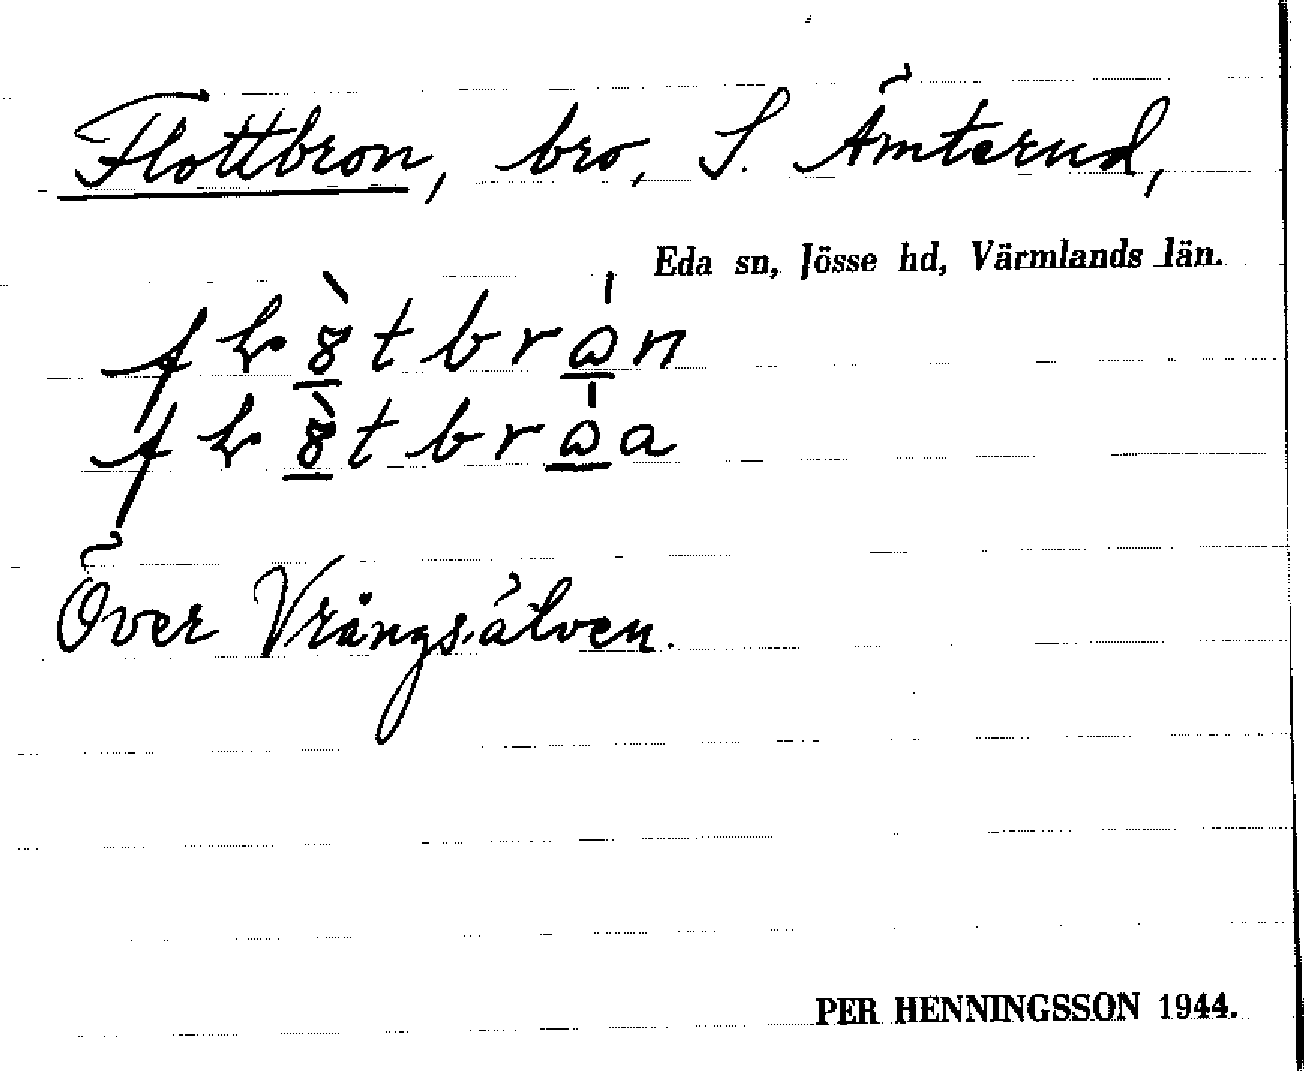 Flottbron, bro, S. Ämterud,
Eda sn, Jösse hd, Värmlands län.
Över Vrångsälven.
PER HENNINGSSON 1944.